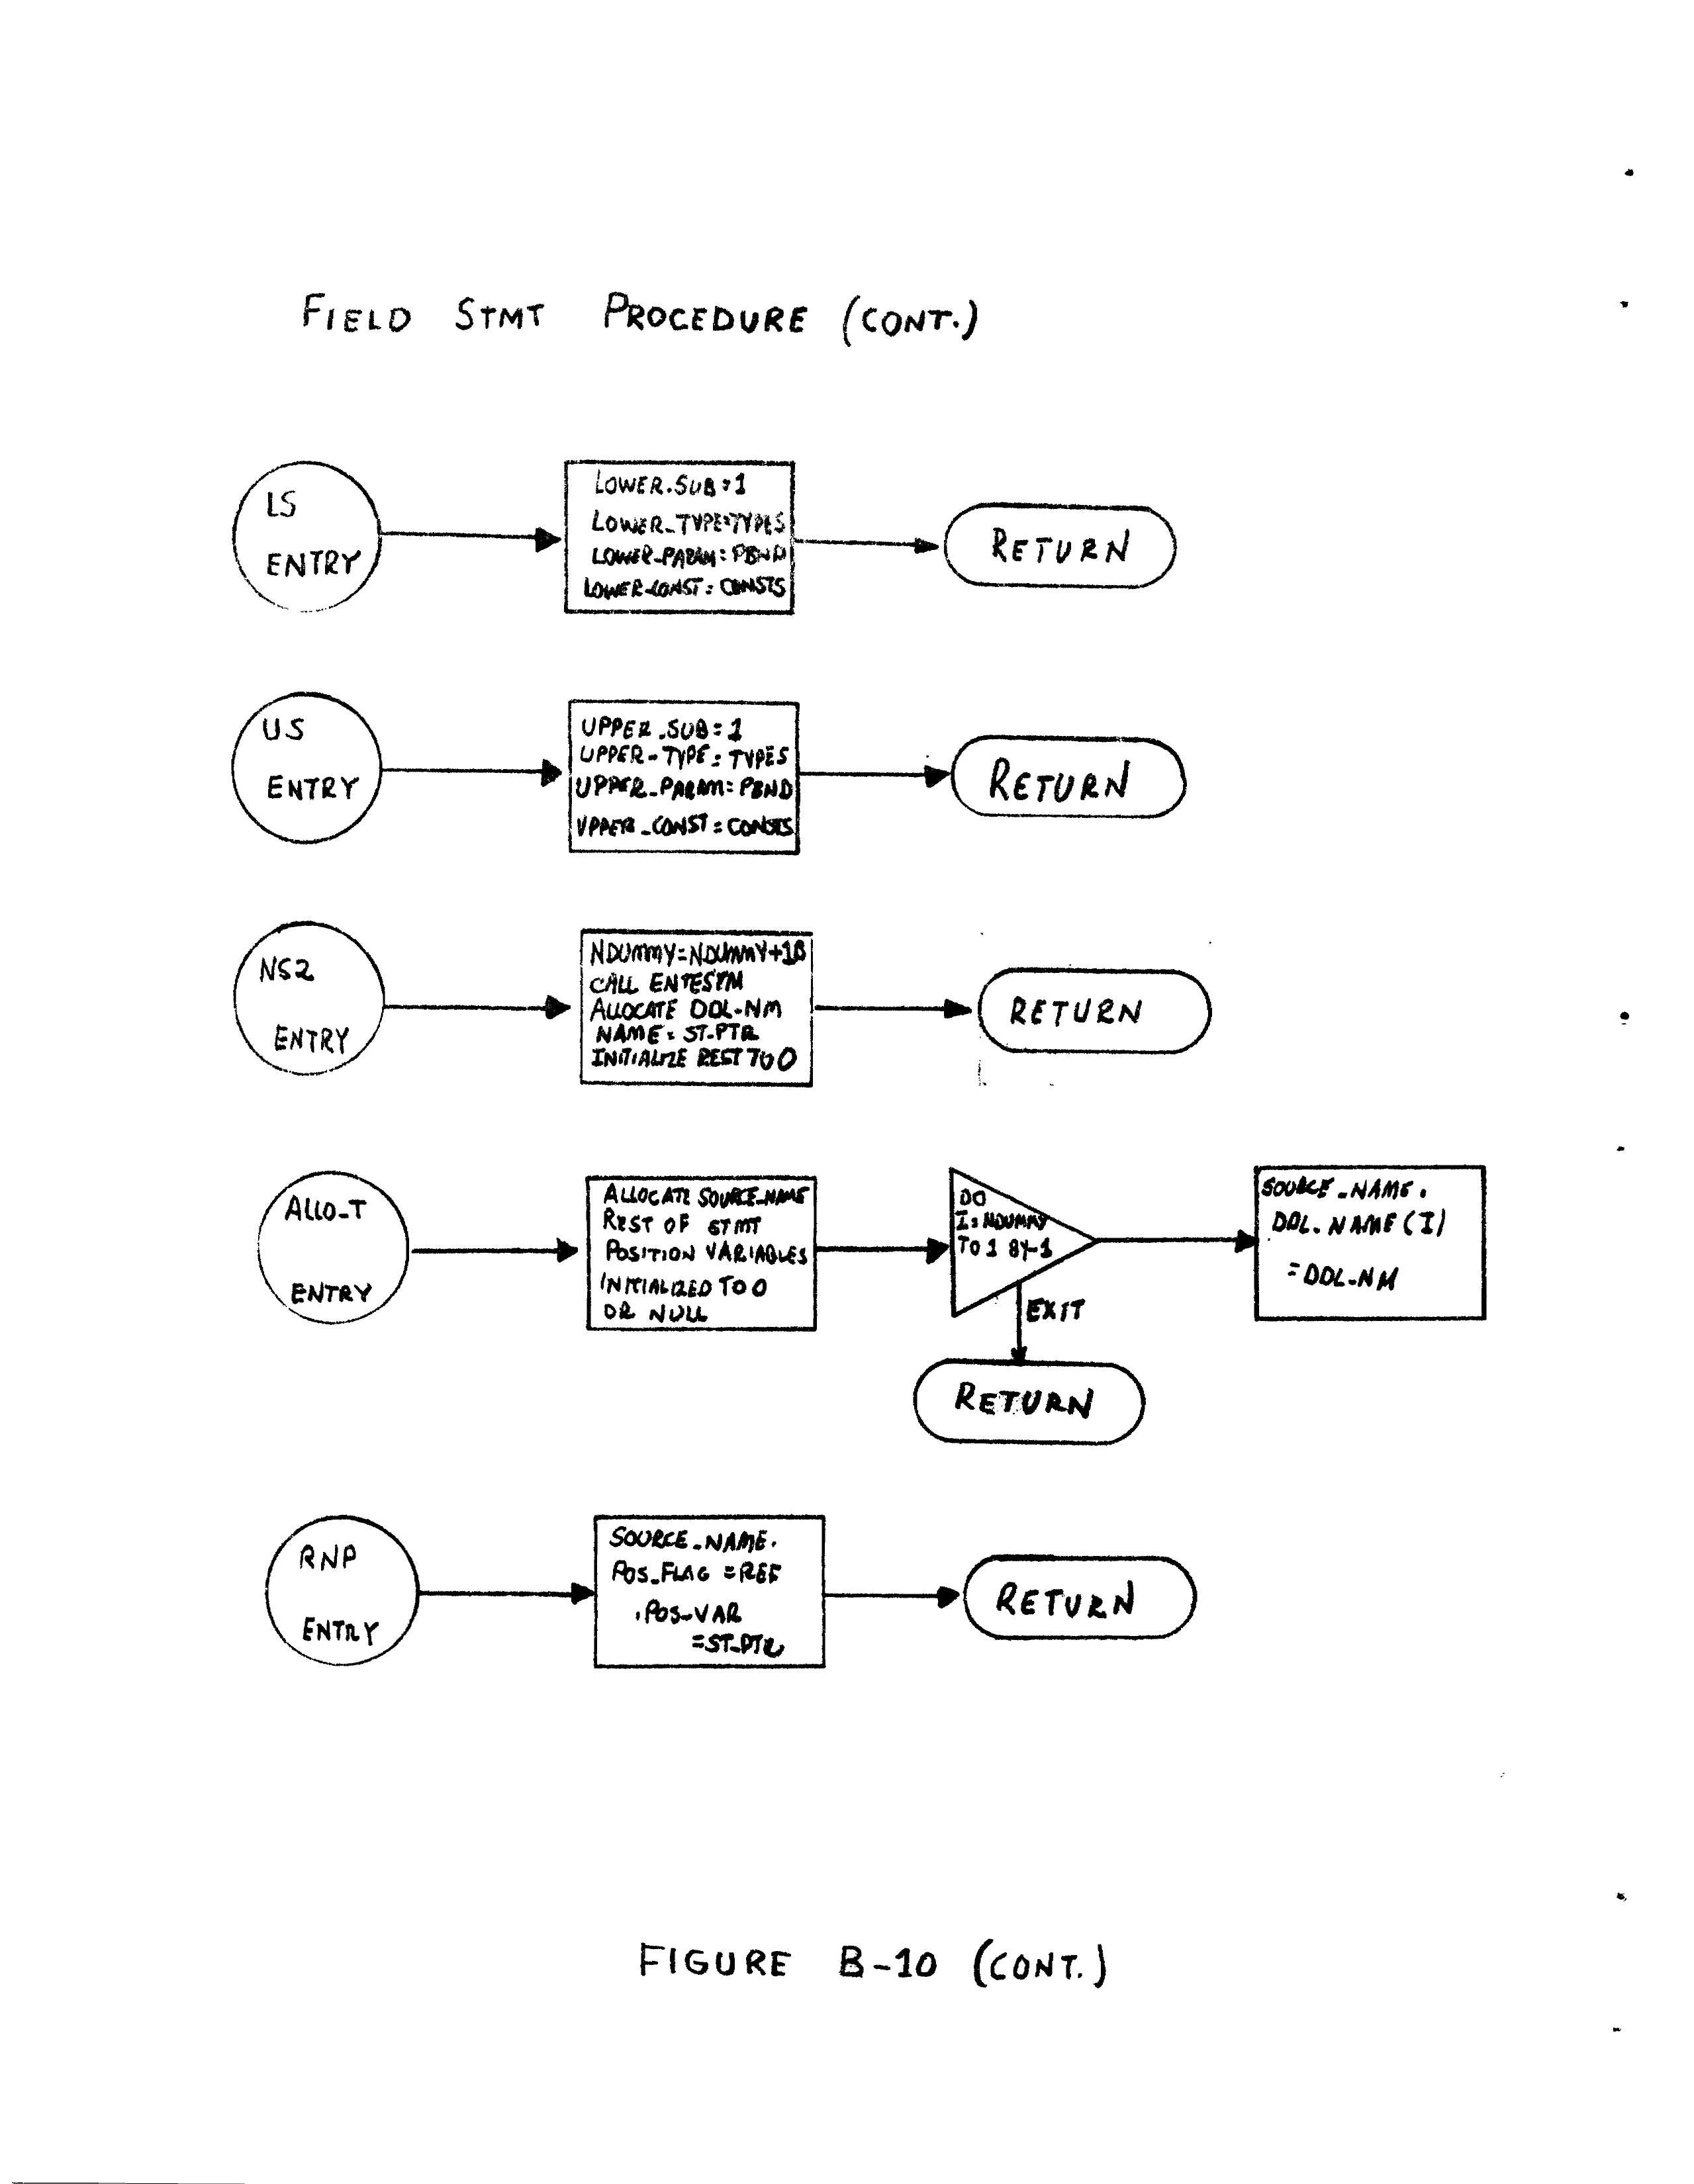 FIELD STMT PROCEDURE (CONT.)
LS
ENTRY
LOWER.SUB=1
LOWER_TYPE=TYPES
LOWER_PARAM=PBND
LOWER_CONST=CONSTS
RETURN
US
ENTRY
UPPER.SUB=1
UPPER-TYPE=TYPES
UPPER_PARAM=PBND
UPPER_CONST=CONSTS
RETURN
NS2
ENTRY
NDUMMY=NDUMMY+1B
CALL ENTESYM
ALLOCATE DDL-NM
NAME=ST-PTR
INITIALIZE REST TO 0
RETURN
ALLO_T
ENTRY
ALLOCATE SOURCE_NAME
REST OF STMT
POSITION VARIABLES
INITIALIZED TO 0
OR NULL
DO
I=NDUMMY
TO 1 BY-1
EXIT
RETURN
SOURCE_NAME.
DDL.NAME(I)
=DDL-NM
RNP
ENTRY
SOURCE_NAME.
POS_FLAG=REF
.POS_VAR
=ST_PTR
RETURN
FIGURE B-10 (CONT.)